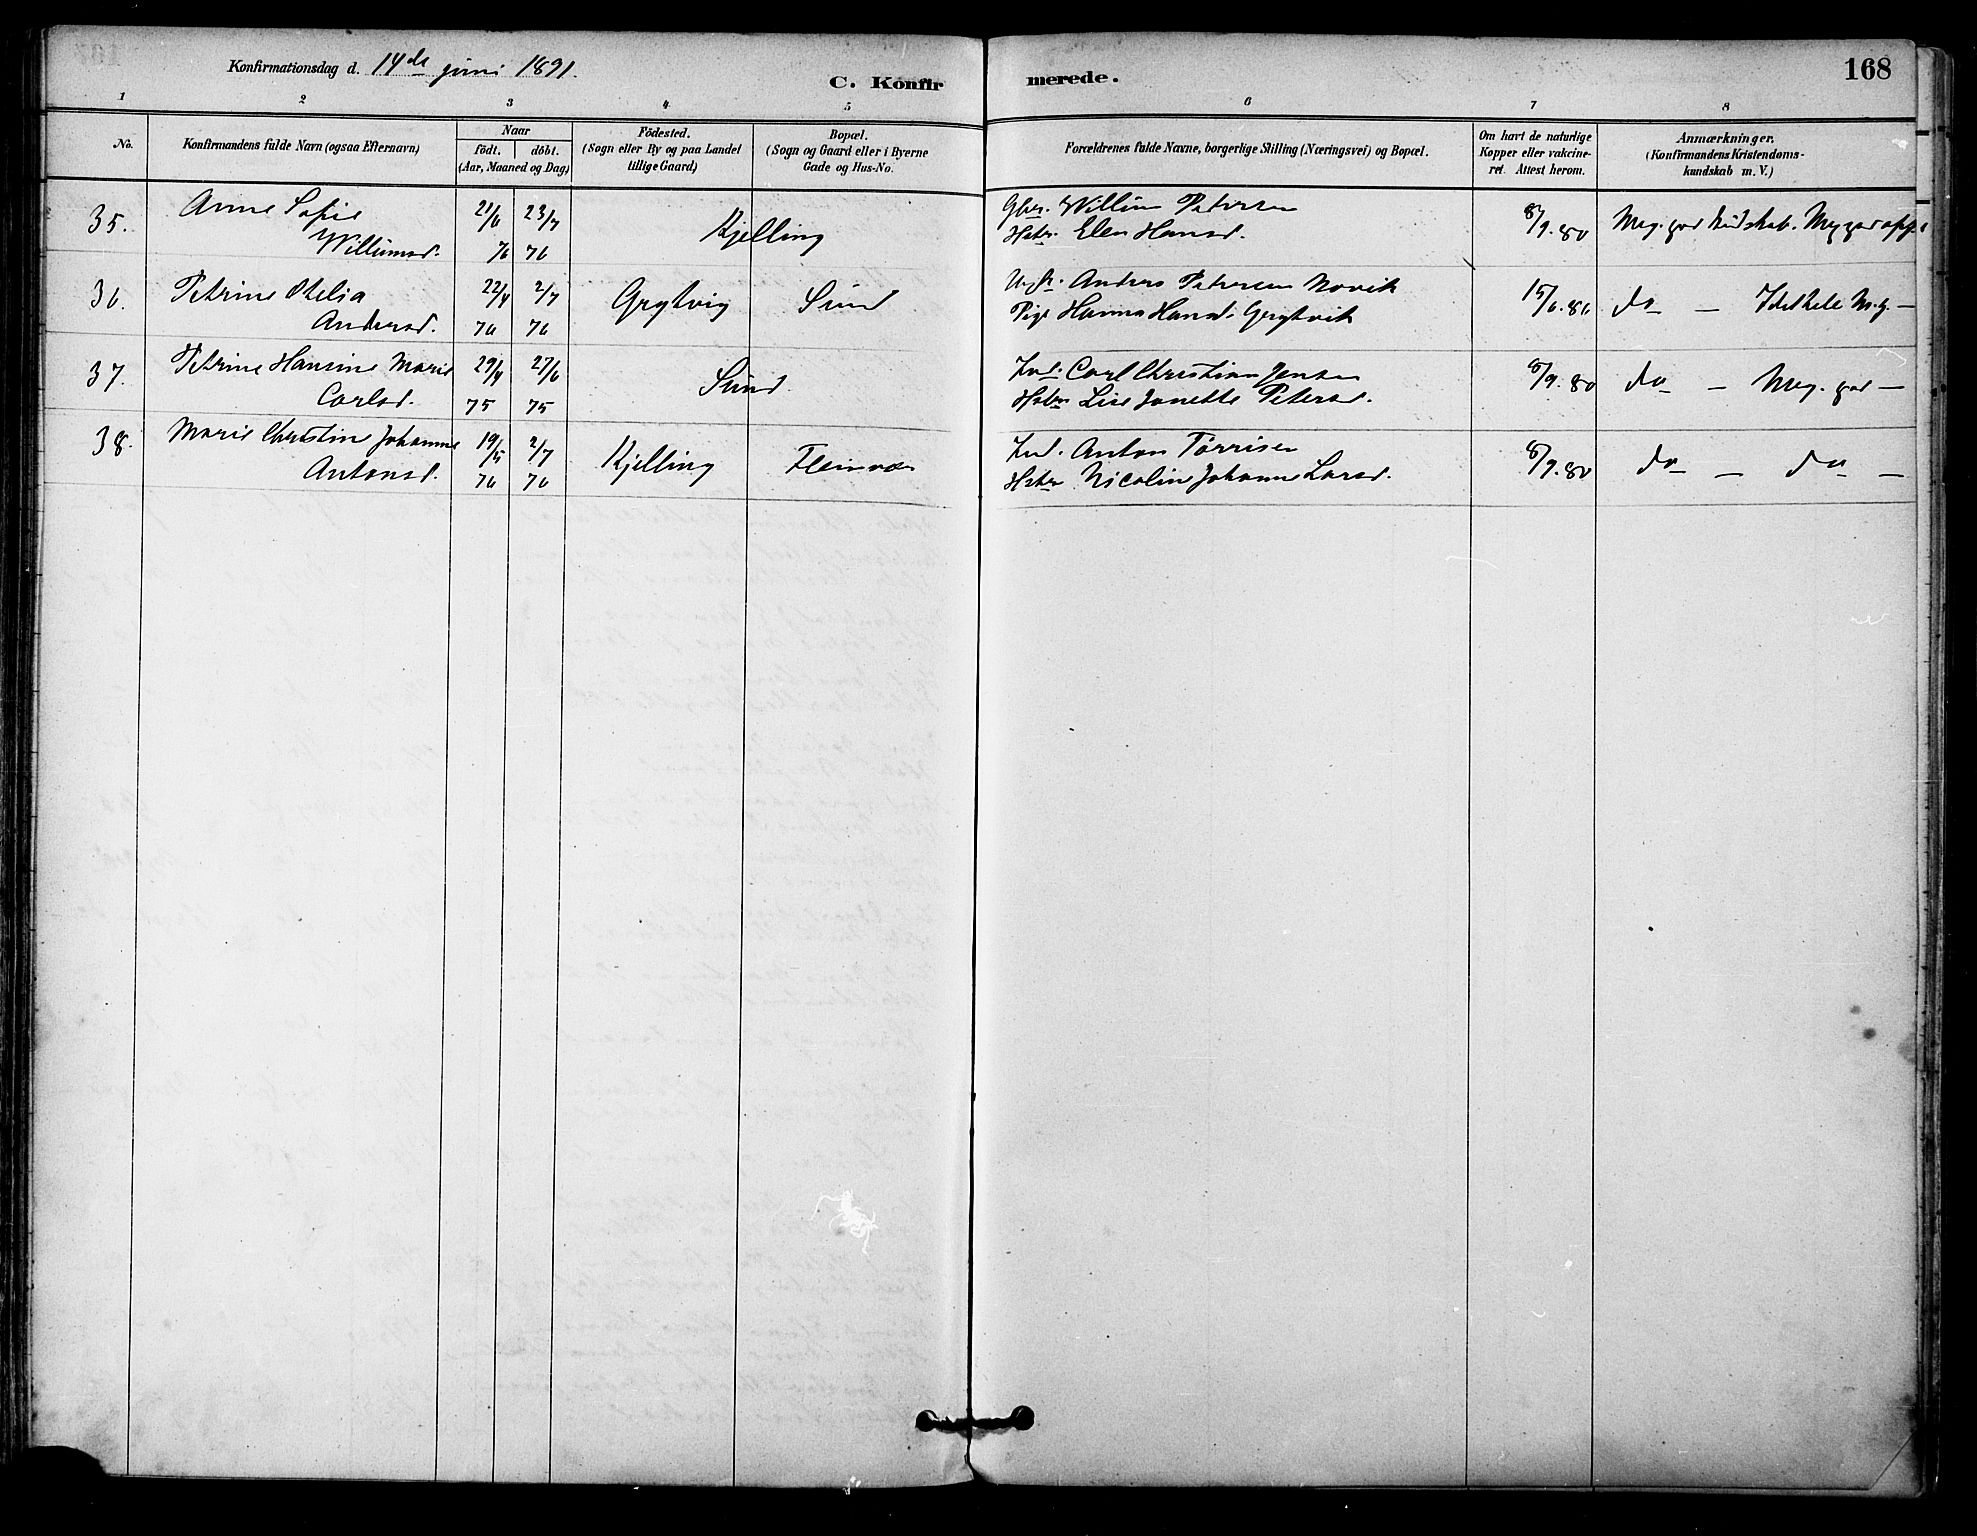 168
Konfirmationsdag d. 14de juni 1891.
C. Konfir merede.
1 2 3 4 5 6 7 8
No.
Konfirmandens fulde Navn (ogsaa Efternavn)
Naar
födt. döbt.
(Aar, Maaned og Dag)
Födested.
(Sogn eller By og paa Landet
tillige Gaard)
Bopæl.
(Sogn og Gaard eller i Byerne
Gade og Hus-No.
Forældrenes fulde Navne, borgerlige Stilling (Næringsvei) og Bopæl.
Om havt de naturlige
Kopper eller vakcine-
ret. Attest herom.
Anmærkninger.
(Konfirmandens Kristendoms-
kundskab m. V.)
35. Anne Sofie 21/6 23/7 Kjelling Gbr. Willum Petersen 8/9.80 Meg. god Kundskab. Meg god
Willumsd. 76 76 Hstr. Elen Hansd.
36. Petrine Otelia 22/4 2/7 Grytvig Sund Anders Petersen Novik 15/6.86 do —
Andersd. 76 76 Pige Hanna Hansd. Grytvik
37. Petrine Hansine Marie 29/4 27/6 Sund Ind. Carl Christian Jensen 8/9.80 do — Meg. god —
Carlsd. 75 75 Hstr. Lise Janette Petersd.
38. Marie Christine Johanne 19/5 2/7 Kjelling Fleinvær Ind. Anton Tørrisen 8/9.80 do — do —
Antonsd. 76 76 Hstr Nicoline Johanne Larsd.